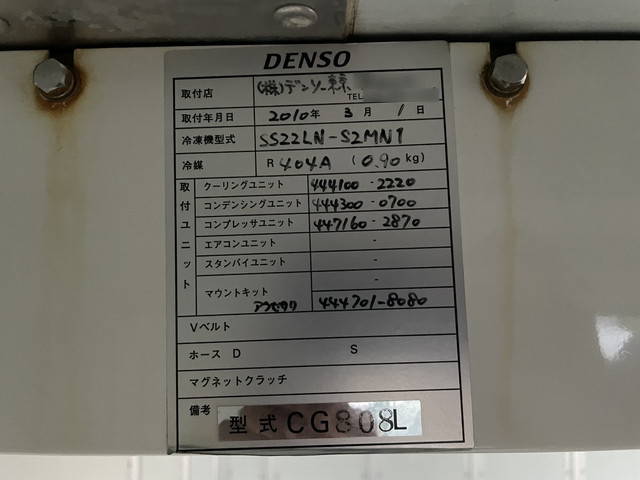 DENSO
取付店 (株)デンソー東京
TEL
取付年月日 2010年 3月 1日
冷凍機型式 SS22LN-S2MN1
冷媒 R 404A (0.90kg)
取付ユニット
クーリングユニット 444100-2220
コンデンシングユニット 444300-0700
コンプレッサユニット 447160-2870
エアコンユニット -
スタンバイユニット -
-
マウントキット
アクセサリ 444701-8080
Vベルト
ホース D S
マグネットクラッチ
備考 型式 CG808L